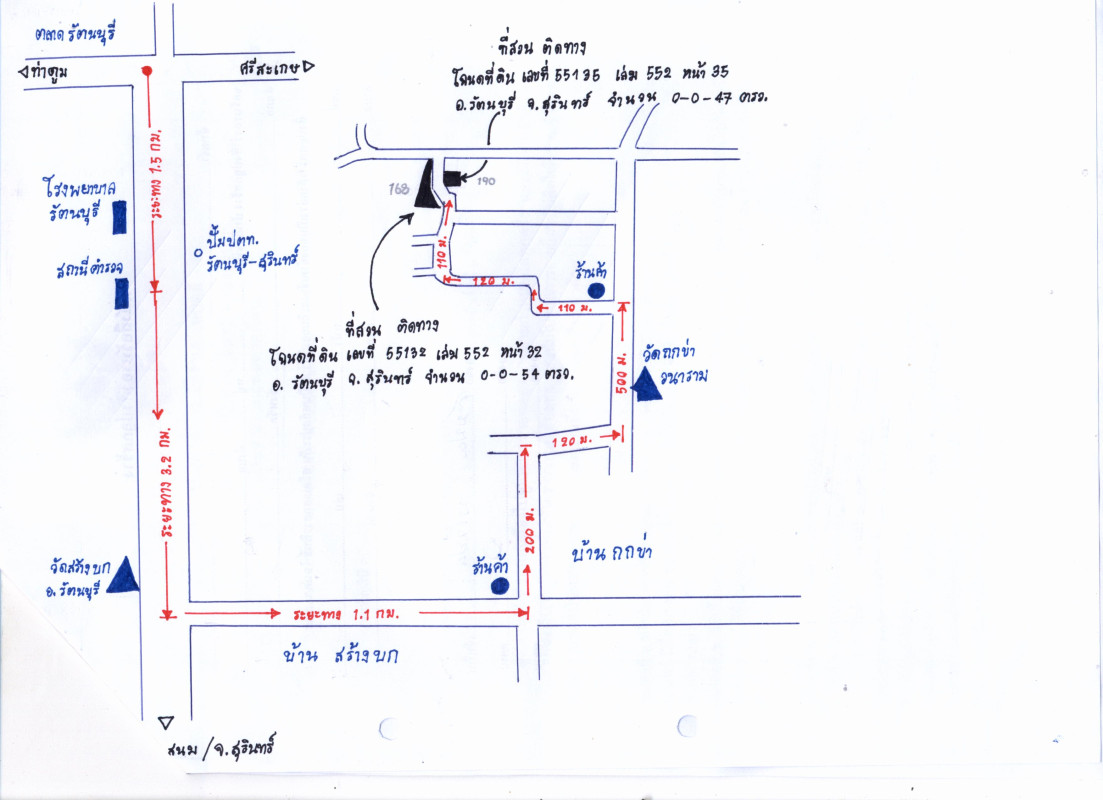 ตลาดรัตนบุรี
ท่าตูม
ศรีสะเกษ
ที่สวน ติดทาง
โฉนดที่ดิน เลขที่ 55135 เล่ม 552 หน้า 35
อ.รัตนบุรี จ.สุรินทร์ จำนวน 0-0-47 ตรว.
ระยะทาง 1.5 กม.
168
190
โรงพยาบาล
รัตนบุรี
ปั๊มปตท.
รัตนบุรี-สุรินทร์
สถานีตำรวจ
110 ม.
120 ม.
ร้านค้า
110 ม.
ที่สวน ติดทาง
โฉนดที่ดิน เลขที่ 55132 เล่ม 552 หน้า 32
อ. รัตนบุรี จ. สุรินทร์ จำนวน 0-0-54 ตรว.
500 ม.
วัดกกข่า
วนาราม
120 ม.
ระยะทาง 3.2 กม.
200 ม.
บ้านกกข่า
วัดสร้างบก
อ.รัตนบุรี
ร้านค้า
ระยะทาง 1.1 กม.
บ้าน สร้างบก
สนม/จ.สุรินทร์